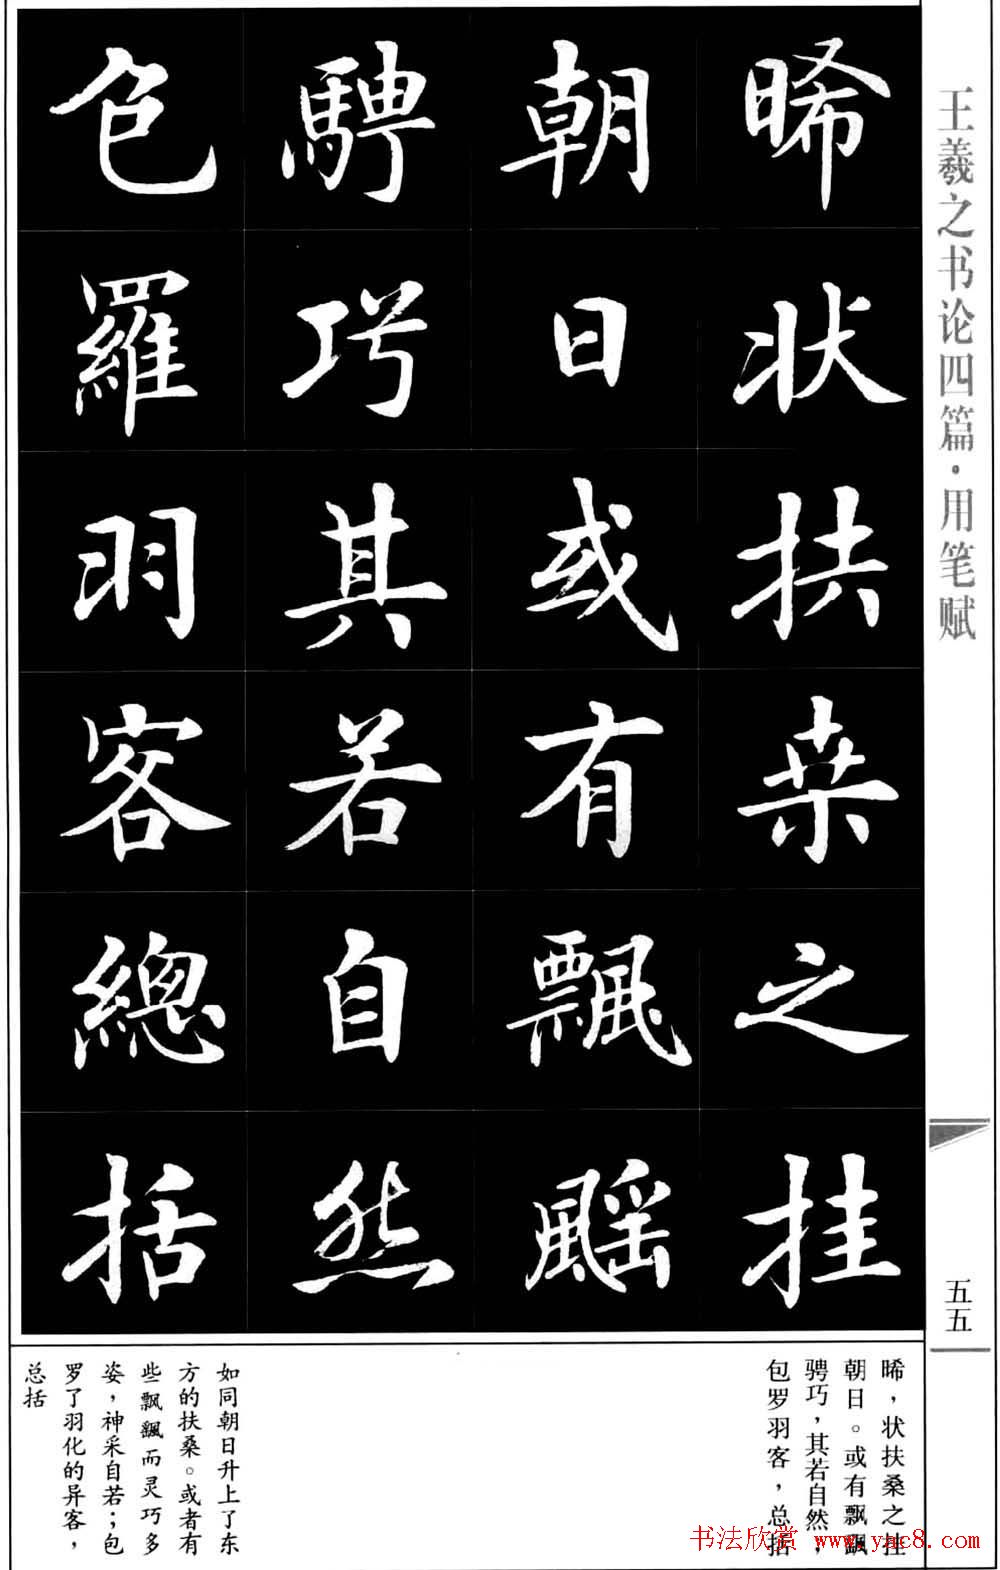 王羲之书论四篇·用笔赋
五五
晞状扶桑之挂
朝日或有飘飖
骋巧其若自然
包羅羽客總括
晞，状扶桑之挂
朝日。或有飘飖
骋巧，其若自然；
包罗羽客，总括
如同朝日升上了东
方的扶桑。或者有
些飘飖而灵巧多
姿，神采自若；包
罗了羽化的异客，
总括
书法欣赏 www.yac8.com